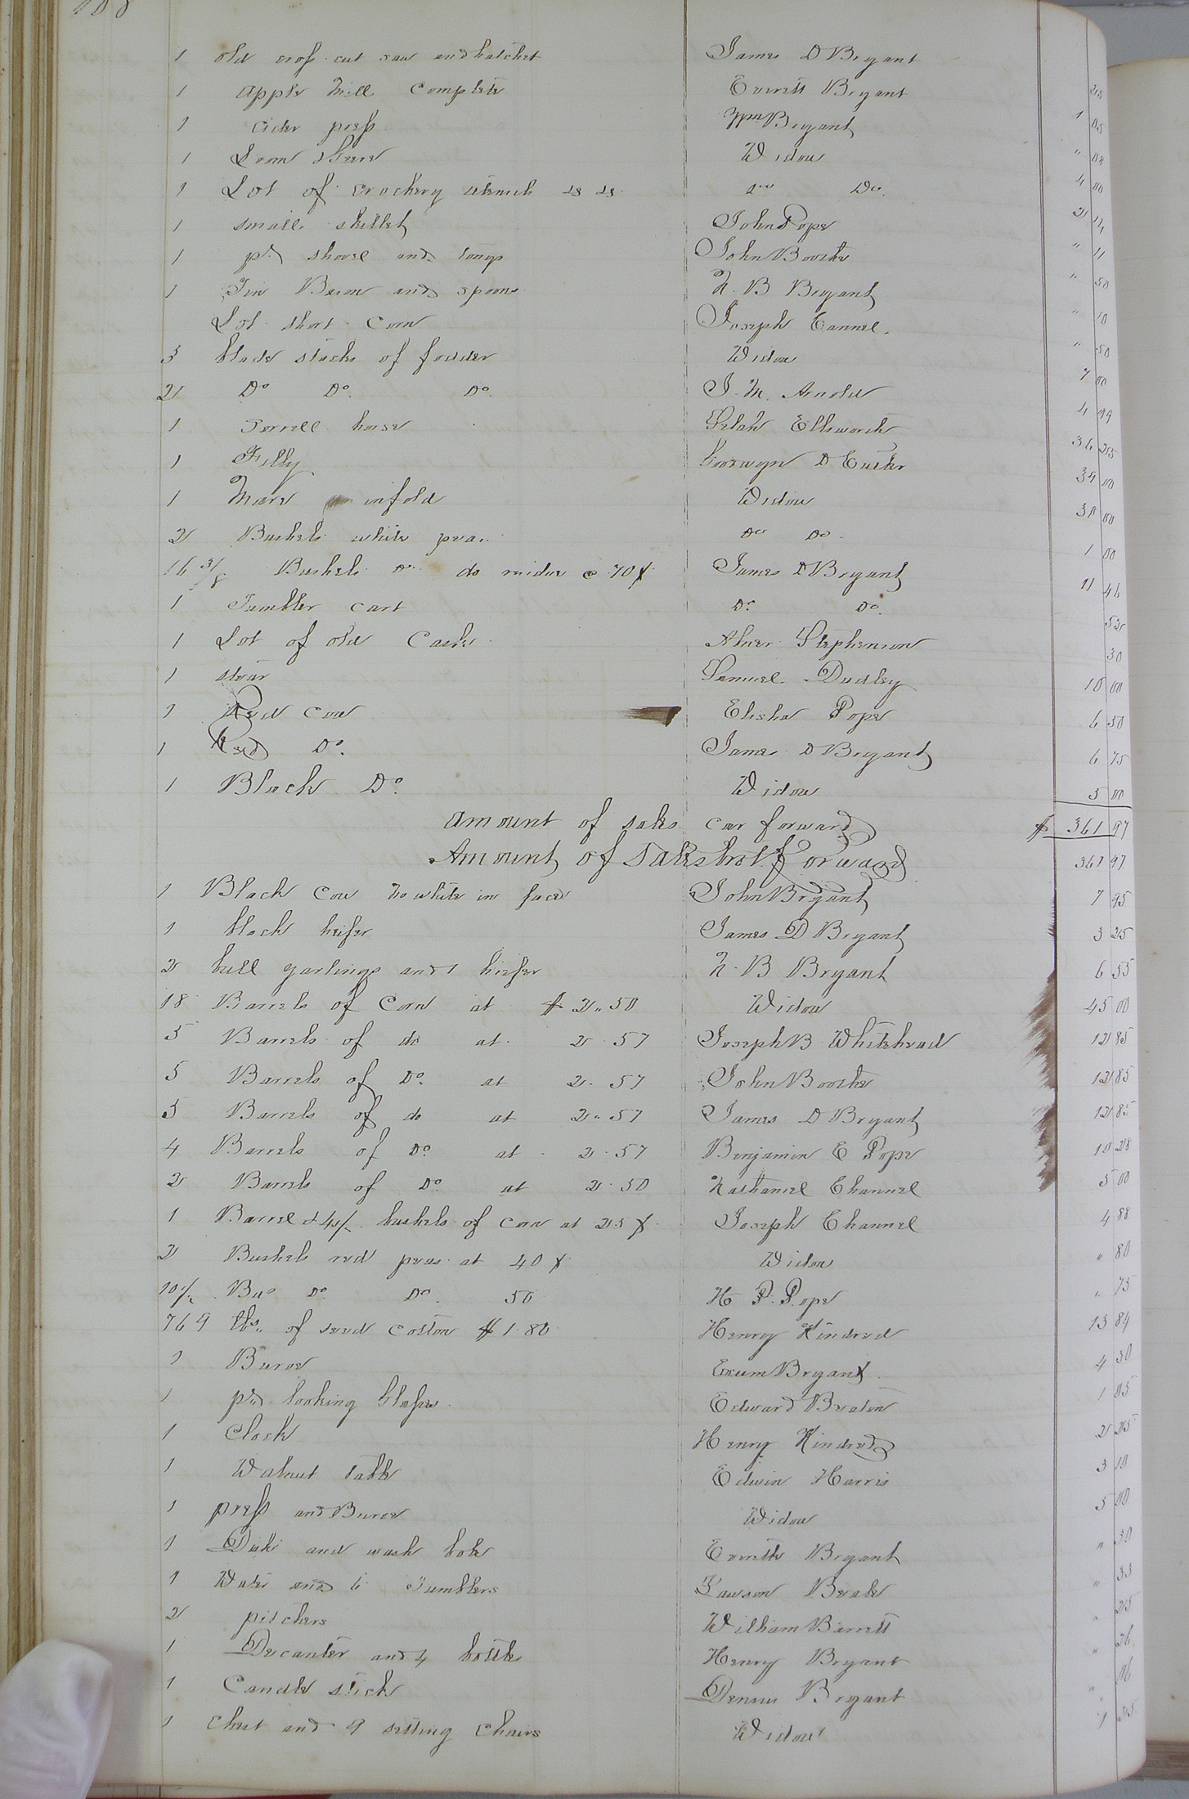 1 old cross cut saw and hatchet James D Bryant
1 apple Mill Complete Everitt Bryant 25
1 Cider press Wm Bryant 1 05
1 Loom & Widow " 08
1 Lot of crockery utensils &c &c Do Do. 4 00
1 small skillet John Pope
1 pr shovel and tongs John Boothe " 11
1 Tin Bason and spoons N. B Bryant " 50
Lot short corn Joseph Cannel. " 10
3 blade stacks of fodder Widow " 50
2 Do Do. Do. J. M. Arnold 7 00
1 Sorrell horse Selah Ellsworth 4 99
1 Filly Goodwyn D 36 25
1 Mare infold Widow 39 00
2 Bushels white peas Do Do. 30 00
16 3/8 Bushels Do do residue @ 70 ¢ James D Bryant 1 00
1 Tumbler cart Do. Do. 11 46
1 Lot of old Casks Abner Stephenson 52
1 stear Samuel Dudley 30
1 Red Cow Elisha Pope 10 00
1 Red Do. James D Bryant 6 50
1 Black Do. Widow 6 75
5 00
Amount of sales car forward $ 361 97
Amount of Sales brot. Forward 361 97
1 Black Cow no white in face John Bryant 7 95
1 black heifer James D Bryant 3 25
2 bull yearlings and 1 heifer N. B Bryant 6 55
18 Barrels of Corn at $ 2.50 Widow 45 00
5 Barrels of do at 2.57 Joseph B Whitehead 12 85
5 Barrels of Do. at 2.57 John Boothe 12 85
5 Barrels of do at 2.57 James D Bryant 12 85
4 Barrels of Do. at 2.57 Benjamin E Pope 10 28
2 Barrels of Do at 2.50 Nathaniel Channel 5 00
1 Barrel & bushels of corn at Joseph Channel 4 88
2 Bushels red peas at 40 ¢ Widow " 80
Bus Do Do. 50 H. P. Pope " 75
769 lbs. of seed cotton $1.80 Henry Kindred 13 84
1 Buroe Exum Bryant 4 50
1 pr looking Glasses Edward Beaton 1 05
1 Clock Henry Kindred 2 25
1 Walnut Table Edwin Harris 3 10
1 press and Buroe Widow 5 00
1 Dish and wash bole Everitt Bryant " 30
1 Water and 6 Tumblers Lawson Beale " 33
2 pitchers William Barrett " 25
1 Decanter and 4 bottles Henry Bryant " 26
1 Candle stick Dennis Bryant " 06
1 chest and 9 sitting Chairs Widow 1 25